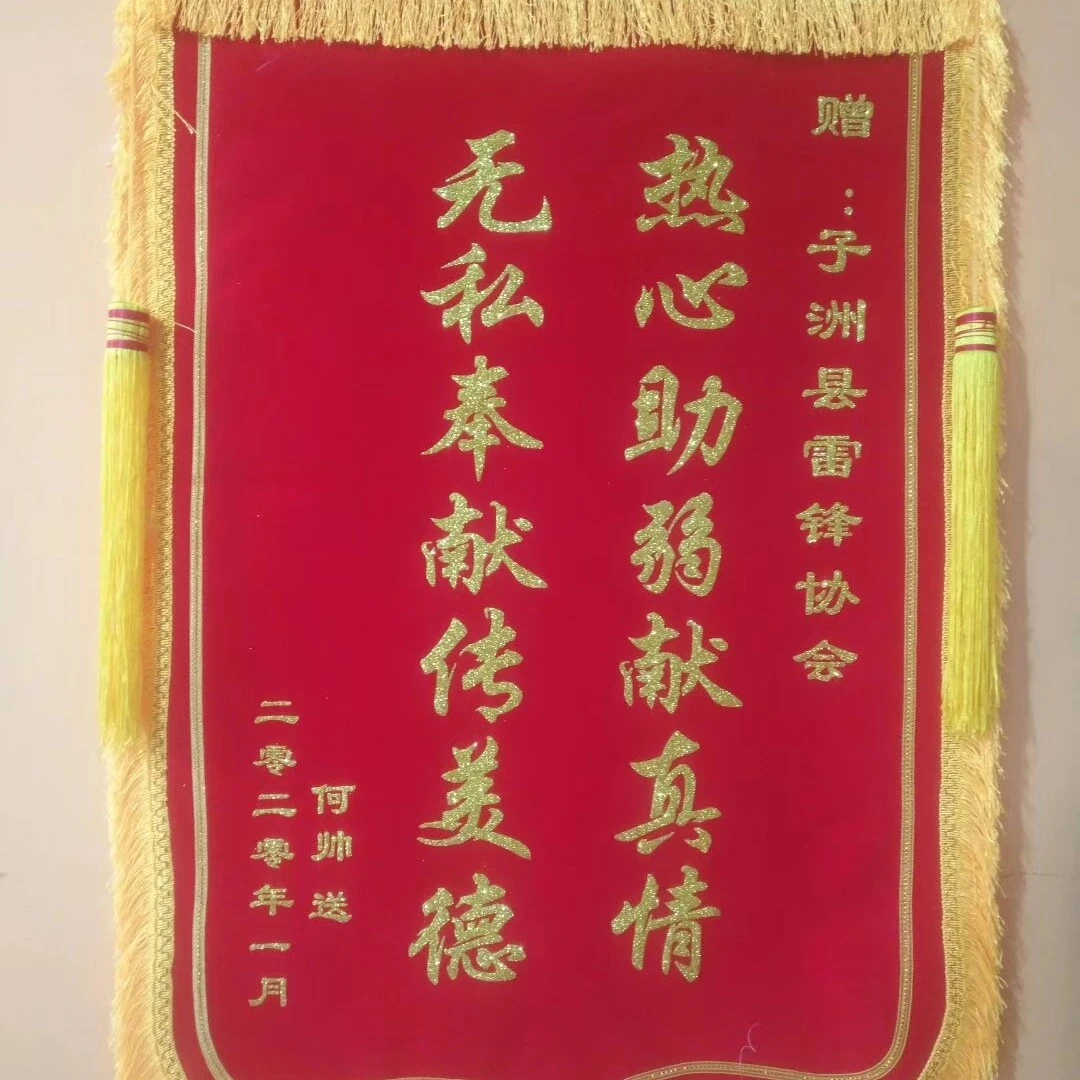 赠：子洲县雷锋协会
热心助弱献真情
无私奉献传美德
何帅送
二零二零年一月